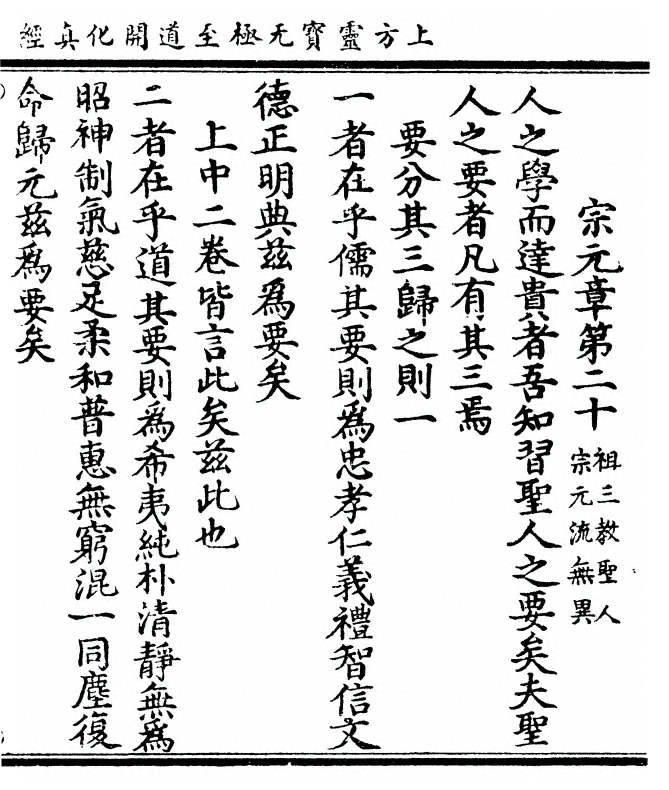 上方靈寶无極至道開化真經
宗元章第二十 祖三教聖人宗元流無異
人之學而達貴者吾知習聖人之要矣夫聖
人之要者凡有其三焉
要分其三歸之則一
一者在乎儒其要則爲忠孝仁義禮智信文
德正明典茲爲要矣
上中二卷皆言此矣茲此也
二者在乎道其要則爲希夷純朴清靜無爲
昭神制氣慈足柔和普惠無窮混一同塵復
命歸元茲爲要矣